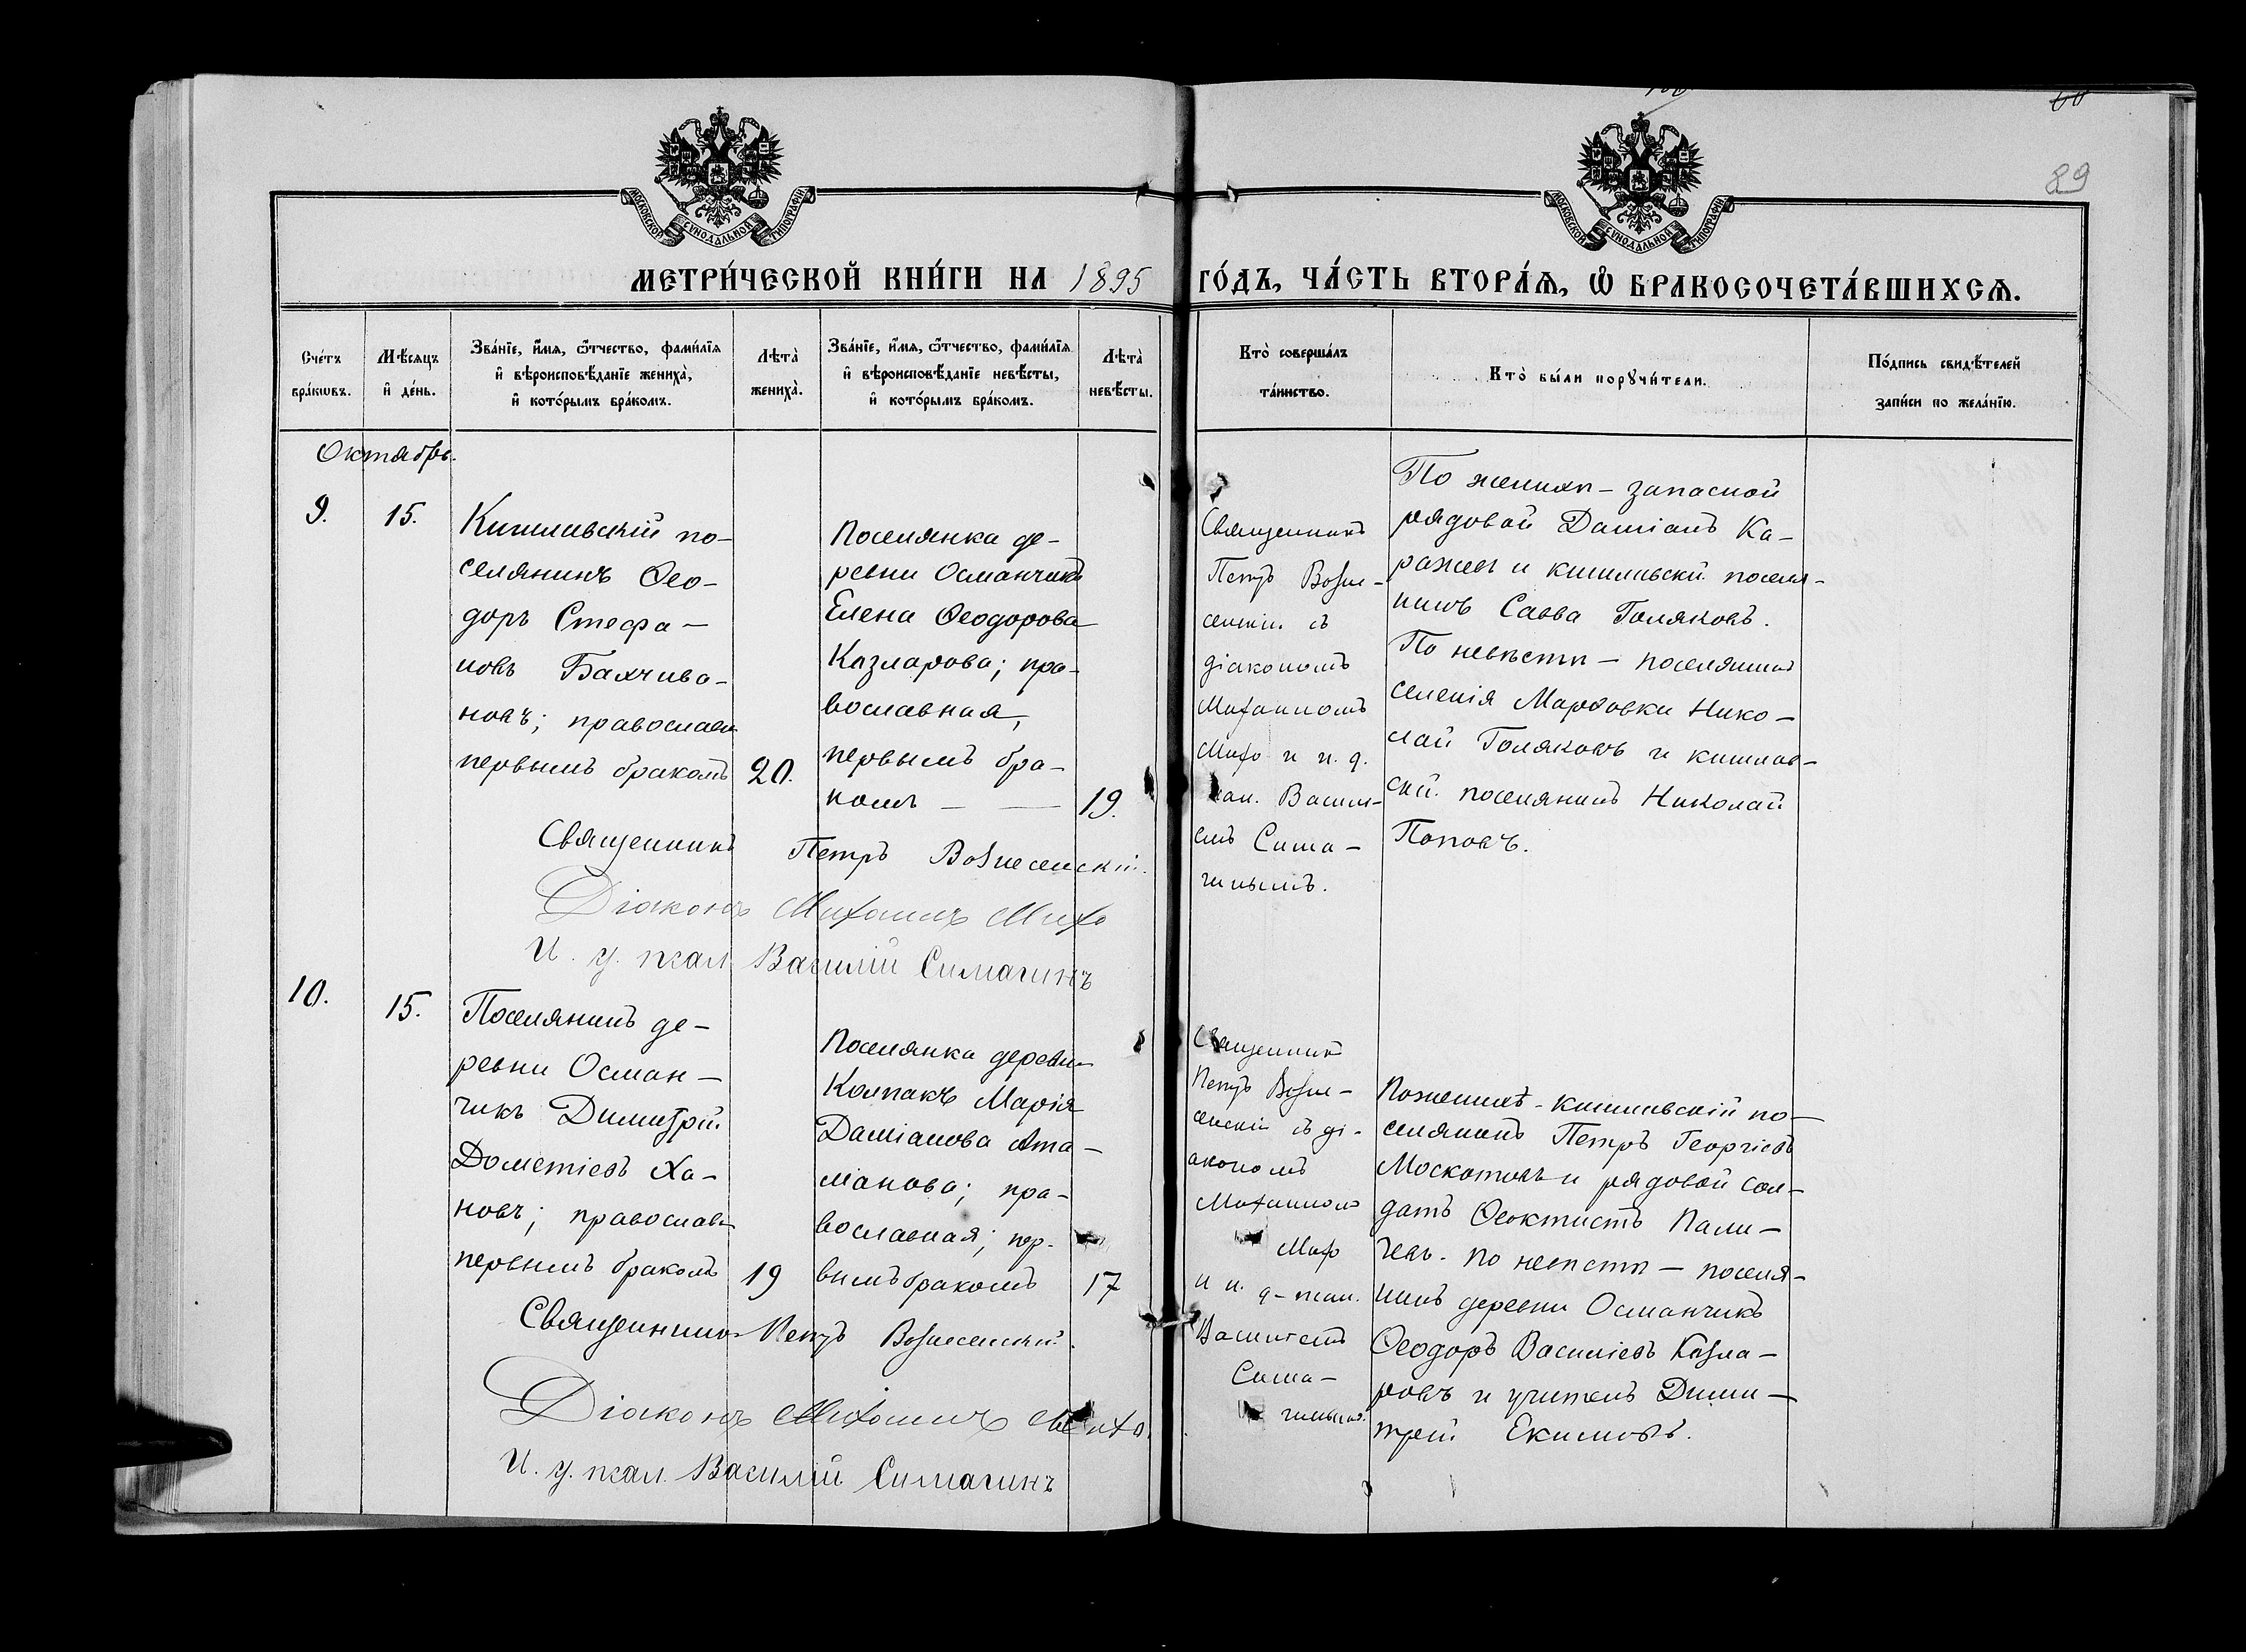 60
89
МОСКОВСКОЙ СѴНОДАЛЬНОЙ ТИПОГРАФІИ
МОСКОВСКОЙ СѴНОДАЛЬНОЙ ТИПОГРАФІИ
МЕТРИ́ЧЕСКОЙ КНИ́ГИ НА 1895 ГО́ДЪ, ЧА́СТЬ ВТОРА́Ѧ, Ѽ БРАКОСОЧЕТА́ВШИХСѦ.
Сче́тъ
бра́кѡвъ.
Мѣ́сяцъ
и҆ де́нь.
Зва́нїе, и҆́мя, ѻ҆́тчество, фами́лїя
и҆ вѣроисповѣ́данїе жениха̀,
и҆ кото́рымъ бра́комъ.
Лѣта̀
жениха̀.
Зва́нїе, и҆́мя, ѻ҆́тчество, фами́лїя
и҆ вѣроисповѣ́данїе невѣ́сты,
и҆ кото́рымъ бра́комъ.
Лѣта̀
невѣ́сты.
Кто̀ соверша́лъ
та́инство.
Кто̀ бы́ли порꙋчи́тели.
По́дпись свидѣ́телей
запи́си по жела́нїю.
Октябрь.
9.
15.
Кишлавскій по-
селянинъ Ѳео-
доръ Стефа-
новъ Бахчива-
новъ; православн
первымъ бракомъ
20.
Поселянка де-
ревни Османчикъ
Елена Ѳеодорова
Казларова; пра-
вославная,
первымъ бра-
комъ — —
19.
Священникъ
Петръ Возне-
сенскій съ
діакономъ
Михаиломъ
Михо и и. д.
псал. Васил-
емъ Сима-
гинымъ.
По женихѣ - запасной
рядовой Даміанъ Ка-
ражея и кишлавскій поселя-
нинъ Савва Поляковъ.
По невѣстѣ - поселянинъ
селенія Марѳовки Нико-
лай Поляковъ и кишлав-
скій поселянинъ Николай
Поповъ.
Священникъ Петръ Вознесенскій.
Діаконъ Михаилъ Михо
И. д. псал. Василій Симагинъ
10.
15.
Поселянинъ де-
ревни Осман-
чикъ Димитрій
Дометіевъ Ха-
новъ; православн
первымъ бракомъ
19
Поселянка деревни
Колпакъ Марія
Даміанова Ата-
манова; пра-
вославная; пер-
вымъ бракомъ
17
Священникъ
Петръ Возне-
сенскій съ ді-
акономъ
Михаиломъ
Михо
и и. д. псал.
Василіемъ
Сима-
гинымъ.
По женихѣ - кишлавскій по-
селянинъ Петръ Георгіевъ
Москотовъ и рядовой сол-
датъ Ѳеоктистъ Пали-
чевъ. По невѣстѣ - поселя-
нинъ деревни Османчикъ
Ѳеодоръ Василіевъ Казла-
ровъ и учитель Дими-
трій Екимовъ.
Священникъ Петръ Вознесенскій.
Діаконъ Михаилъ Михо
И. д. псал. Василій Симагинъ